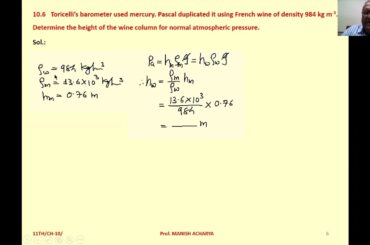 10.6 Toricelli's barometer used mercury. Pascal duplicated it using French wine of density 984 kg m⁻³.
Determine the height of the wine column for normal atmospheric pressure.
Sol.:
ρw = 984 kg/m³
ρm = 13.6×10³ kg/m³
hm = 0.76 m
Pa = hm ρm g = hw ρw g
∴ hw = ρm/ρw hm
= 13.6×10³/984 × 0.76
= ___ m
11TH/CH-10/ Prof. MANISH ACHARYA 6